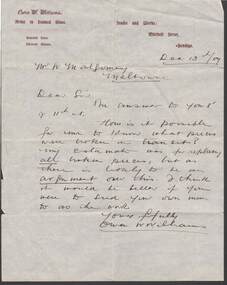 Studio and Works:
Dec 13th/09
Mr W Montgomery
Dear Sir
In answer to yours
of 11th
How is it possible
for me to know what pieces
were broken in transit
my estimate was for replacing
all broken pieces, but as
there is likely to be an
argument over this I think
it would be better if you
were to send your own man
to do the work
Yours ffully
Owen W Williams